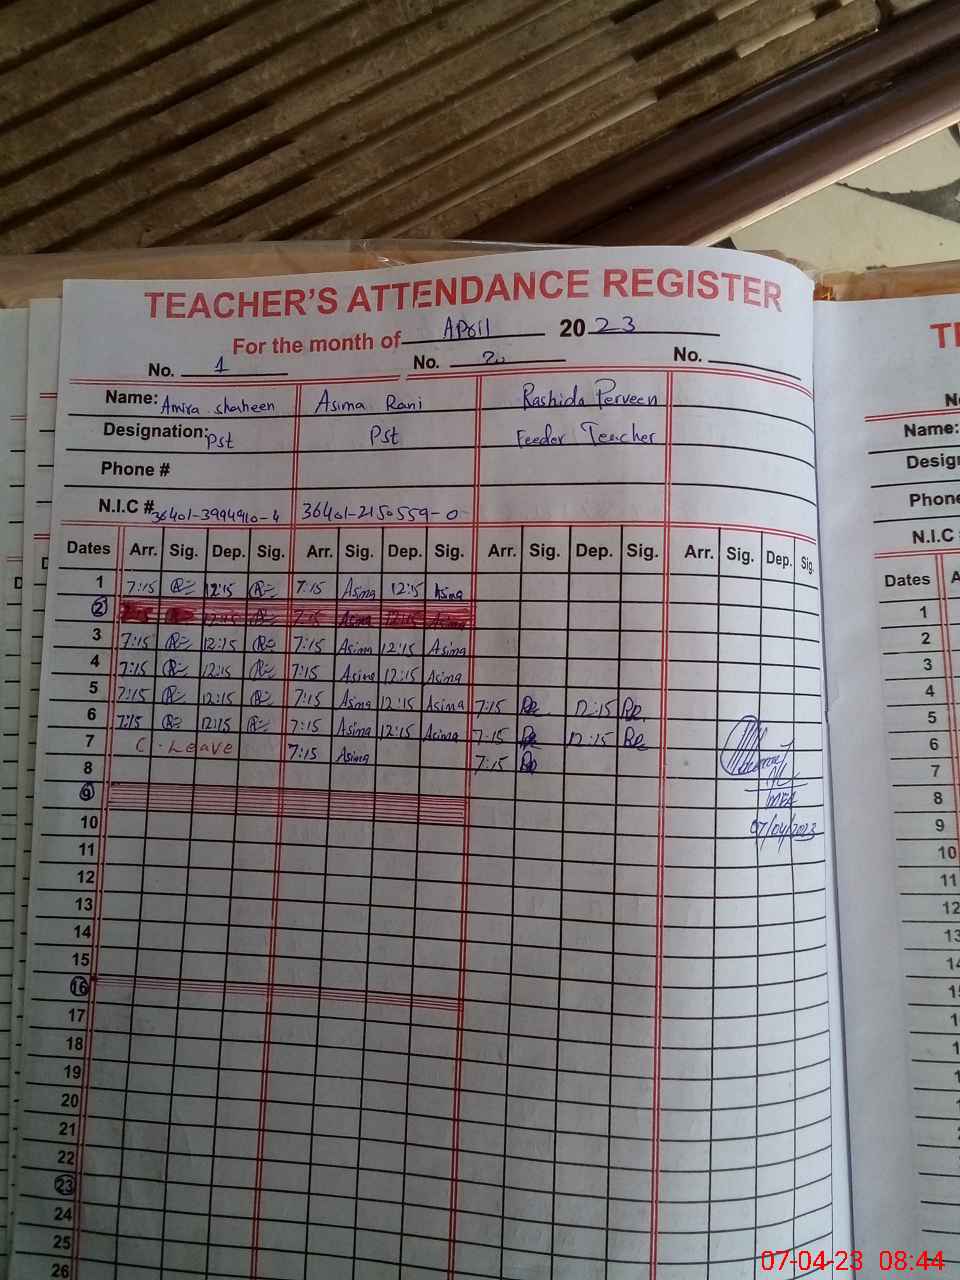 TEACHER'S ATTENDANCE REGISTER
For the month of April 2023
No. 1 No. 2 No.
Name: Amira Shaheen Asima Rani Rashida Perveen
Designation: Pst Pst Feeder Teacher
Phone #
N.I.C # 36401-3994910-4 36401-2150559-0
Dates Arr. Sig. Dep. Sig. Arr. Sig. Dep. Sig. Arr. Sig. Dep. Sig. Arr. Sig. Dep. Sig.
1 7:15 12:15 7:15 Asima 12:15 Asima
2 12:15 7:15 Asima 12:15 Asima
3 7:15 12:15 7:15 Asima 12:15 Asima
4 7:15 12:15 7:15 Asima 12:15 Asima
5 7:15 12:15 7:15 Asima 12:15 Asima 7:15 12:15
6 7:15 12:15 7:15 Asima 12:15 Asima 7:15 12:15
7 C. Leave 7:15 Asima 7:15
8
9
MEA
07/04/2023
10
11
12
13
14
15
16
17
18
19
20
21
22
23
24
25
26
Name:
Phone
N.I.C
Dates
1
2
3
4
5
6
7
8
9
10
11
12
07-04-23 08:44